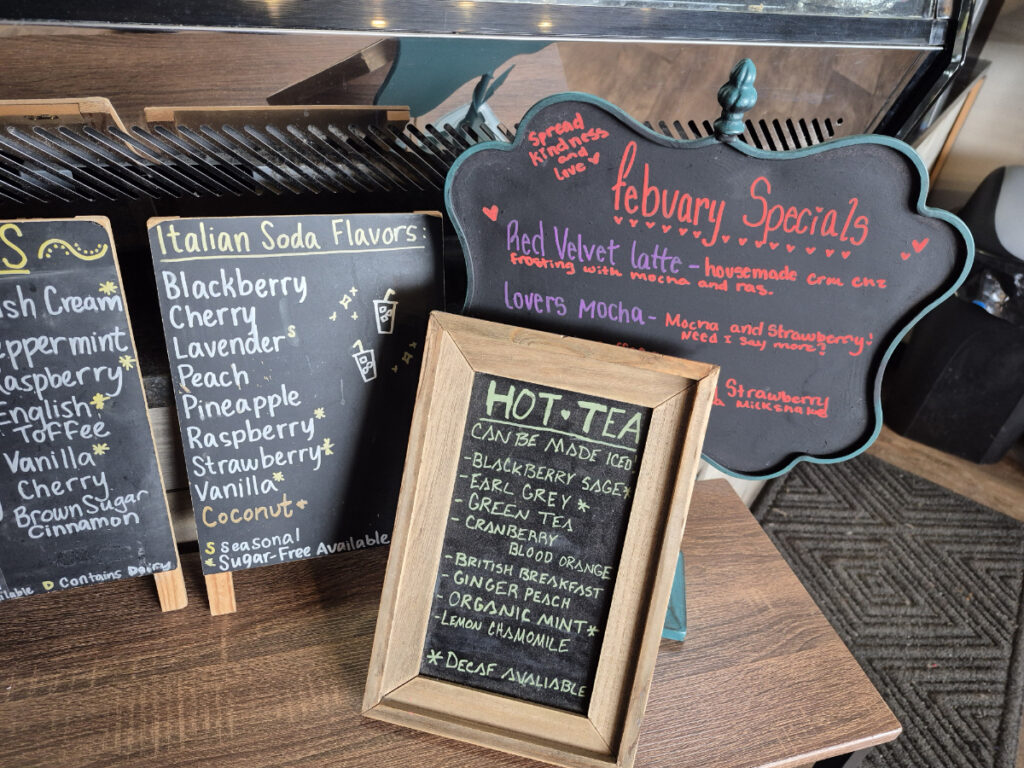 s
ish Cream*
eppermint
Raspberry*
English*
Toffee
Vanilla*
Cherry
Brown Sugar
Cinnamon
D Contains Dairy
Italian Soda Flavors:
Blackberry
Cherry
Lavender s
Peach
Pineapple
Raspberry*
Strawberry*
Vanilla*
Coconut*
S Seasonal
* Sugar-Free Available
HOT ♥ TEA
CAN BE MADE ICED
-BLACKBERRY SAGE*
-EARL GREY *
-GREEN TEA
-CRANBERRY
BLOOD ORANGE
-BRITISH BREAKFAST
-GINGER PEACH
-ORGANIC MINT*
-LEMON CHAMOMILE
*DECAF AVALIABLE
Spread
kindness
and
love ♥
febuary Specials
Red Velvet latte - housemade crm chz
frosting with mocha and ras.
lovers Mocha - Mocha and Strawberry!
Need I say more?
Strawberry
a milkshake